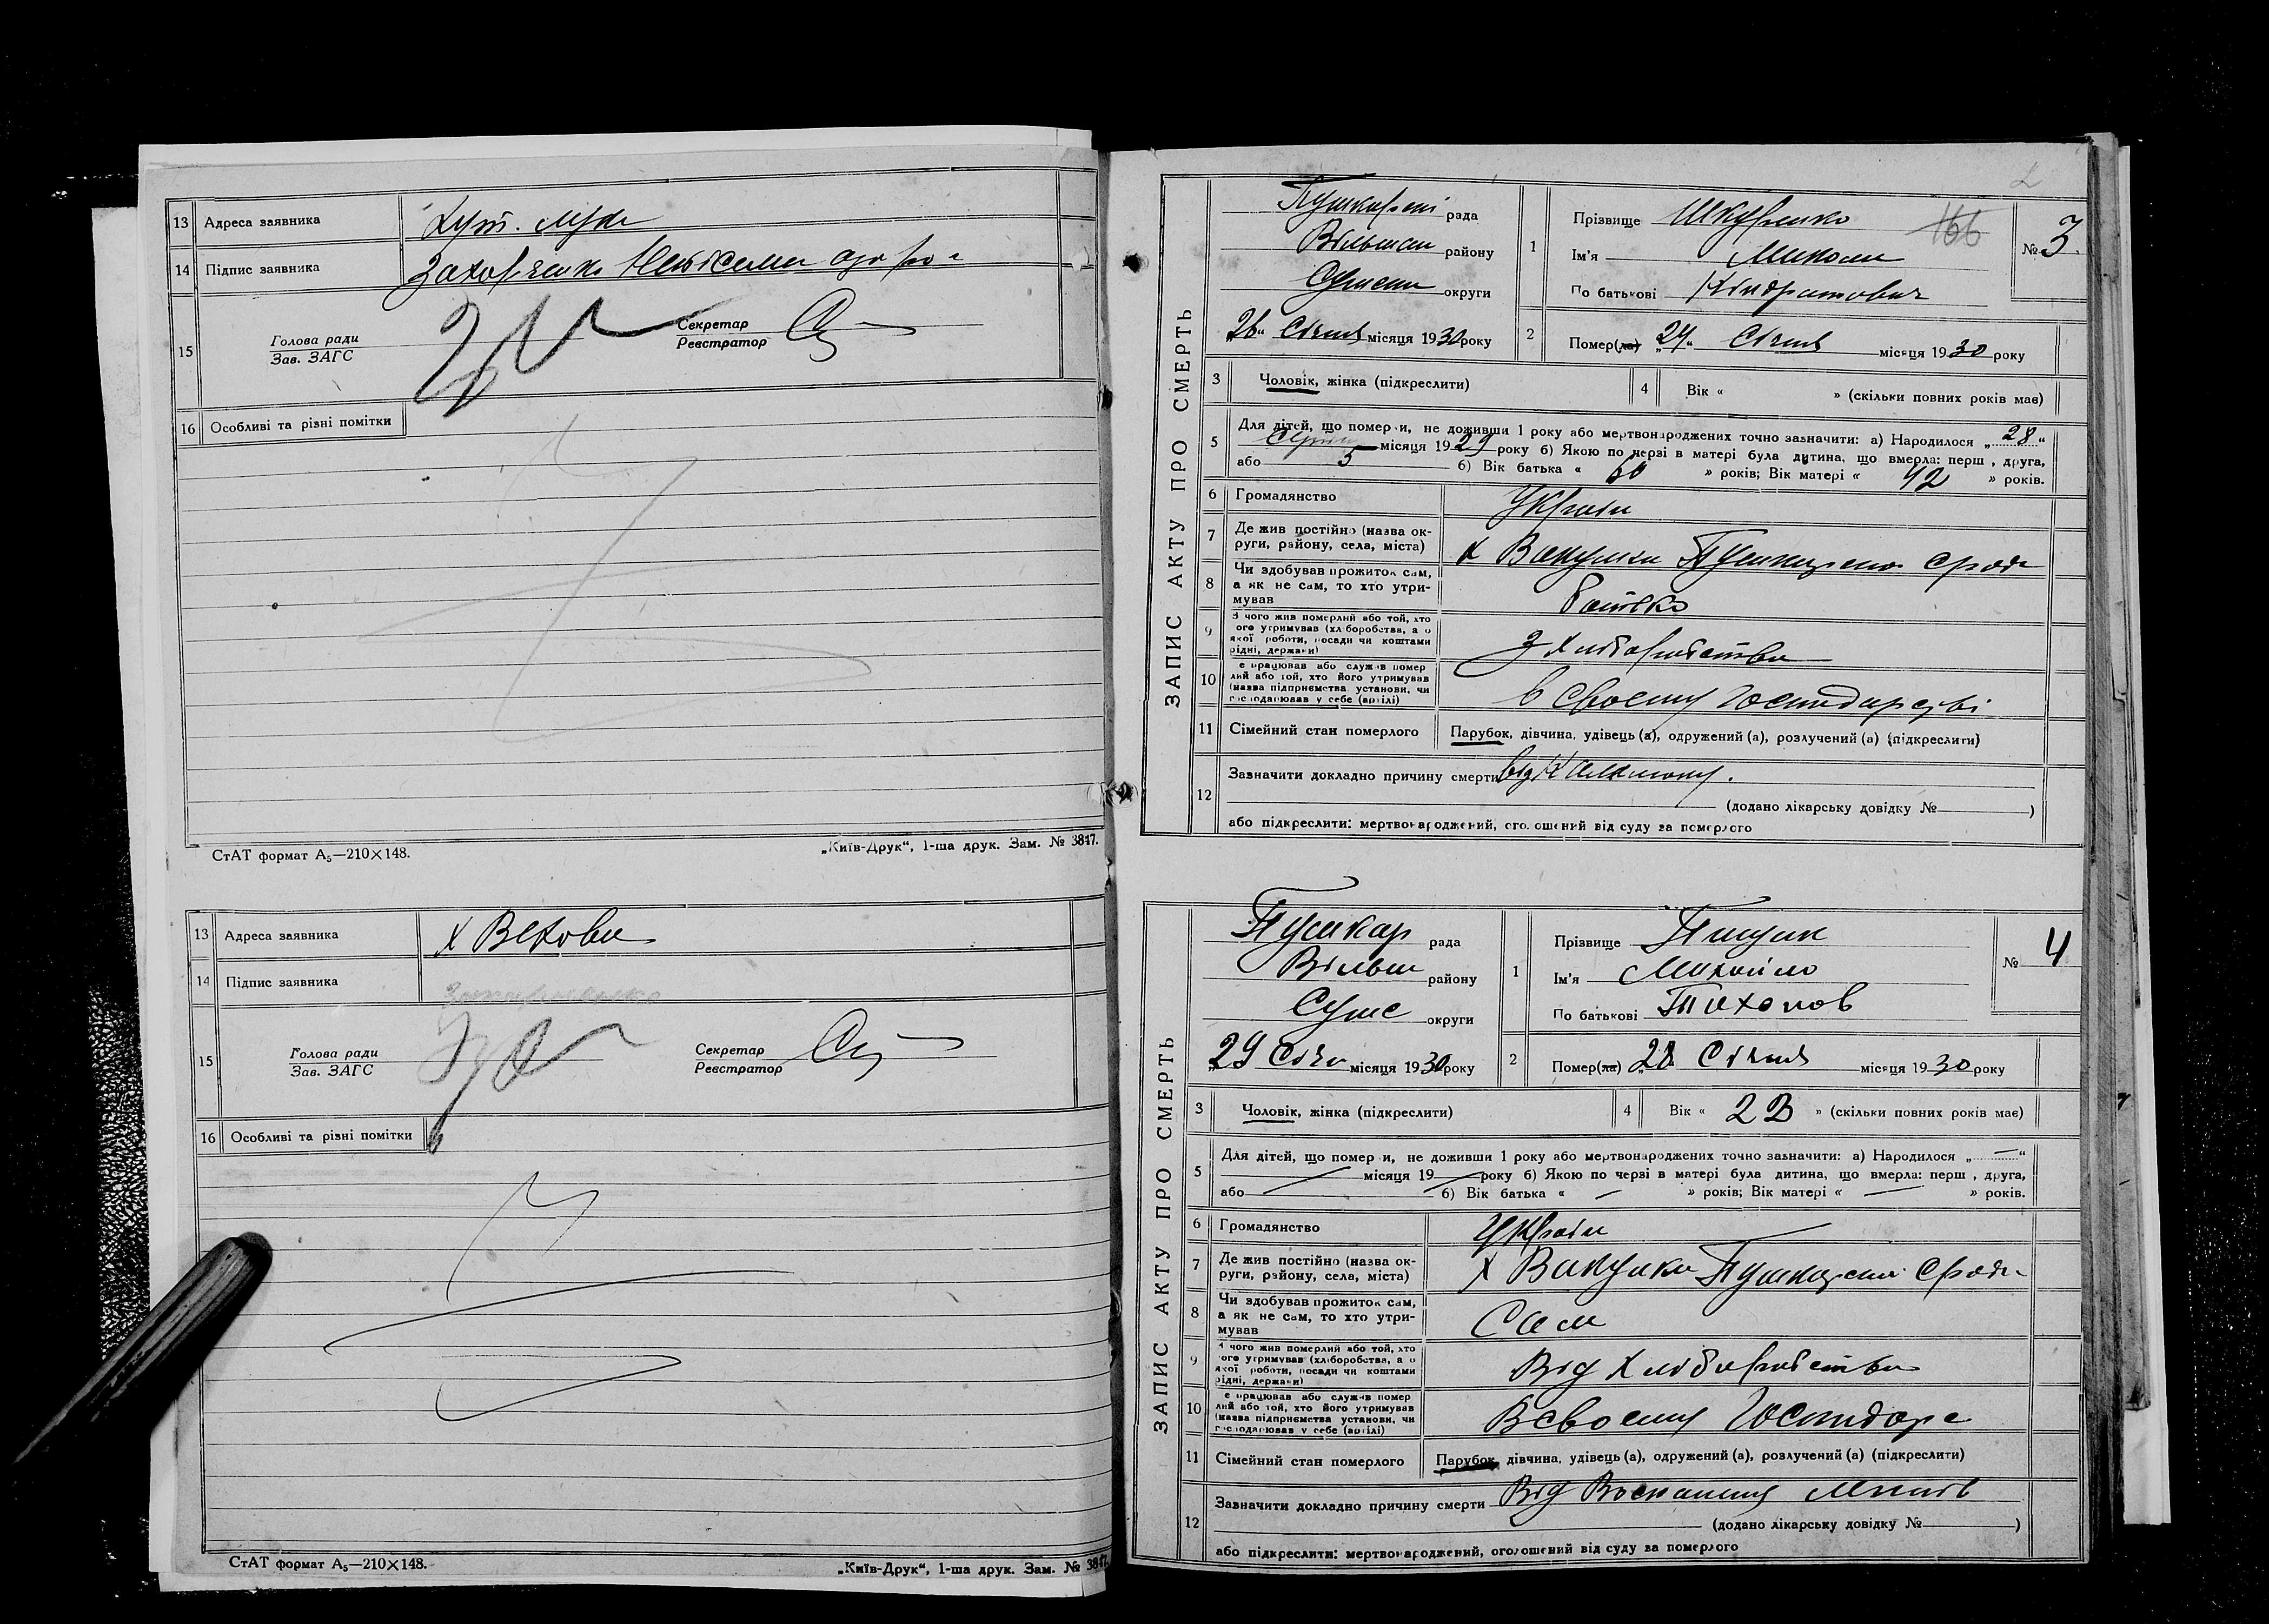 13 Адреса заявника Хут.
14 Підпис заявника
15 Голова ради
Зав. ЗАГС
Секретар
Реєстратор
16 Особливі та різні помітки
СтАТ формат А₅—210×148.
„Київ-Друк“, 1-ша друк. Зам. № 3847.
13 Адреса заявника Х
14 Підпис заявника
15 Голова ради
Зав. ЗАГС
Секретар
Реєстратор
16 Особливі та різні помітки
СтАТ формат А₅—210×148.
„Київ-Друк“, 1-ша друк. Зам. № 3847.
ЗАПИС АКТУ ПРО СМЕРТЬ
рада
Вільшан району
округи
26 Січня місяця 1930 року
1 Прізвище Шкуренко
Ім'я Микола
По батькові Кіндратович
166
№ 3
2 Помер(ла) „24“ Січня місяця 1930 року
3 Чоловік, жінка (підкреслити)
4 Вік « » (скільки повних років мав)
5 Для дітей, що помер и, не доживши 1 року або мертвонароджених точно зазначити: а) Народилося „28“
місяця 1929 року б) Якою по черзі в матері була дитина, що вмерла: перш , друга,
або 5 б) Вік батька « 50 » років; Вік матері « 42 » років.
6 Громадянство Україн
7 Де жив постійно (назва ок-
руги, району, села, міста)
х Вакулки
8 Чи здобував прожиток сам,
а як не сам, то хто утри-
мував
батько
9 З чого жив померлий або той, хто
ого утримував (хліборобства, а о
якої роботи, посади чи коштами
рідні, держави)
З хліборобства
10 е працював або служив помер
лий або той, хто його утримував
(назва підприємства установи, чи
господарював у себе (артілі)
в своему господарстві
11 Сімейний стан померлого
Парубок, дівчина, удівець (а), одружений (а), розлучений (а) (підкреслити)
12 Зазначити докладно причину смерти від
(додано лікарську довідку № )
або підкреслити: мертвонароджений, оголошений від суду за померлого
ЗАПИС АКТУ ПРО СМЕРТЬ
Пушкар рада
Вільш району
Сумс округи
„29 Січн місяця 1930 року
1 Прізвище
Ім'я Михайло
По батькові Тихонов
№ 4
2 Помер(ла) „28 Січня місяця 1930 року
3 Чоловік, жінка (підкреслити)
4 Вік « 23 » (скільки повних років має)
5 Для дітей, що помер и, не доживши 1 року або мертвонароджених точно зазначити: а) Народилося „—“
місяця 19 року б) Якою по черзі в матері була дитина, що вмерла: перш , друга,
або б) Вік батька « — » років; Вік матері « — » років.
6 Громадянство Україн
7 Де жив постійно (назва ок-
руги, району, села, міста)
х Вакулки
8 Чи здобував прожиток сам,
а як не сам, то хто утри-
мував
Сам
9 З чого жив померлий або той, хто
ого утримував (хліборобства, а о
якої роботи, посади чи коштами
рідні, держави)
Від хліборобства
10 е працював або служив помер
лий або той, хто його утримував
(назва підприємства установи, чи
господарював у себе (артілі)
В своему господарс
11 Сімейний стан померлого
Парубок, дівчина, удівець (а), одружений (а), розлучений (а) (підкреслити)
12 Зазначити докладно причину смерти Від
(додано лікарську довідку № )
або підкреслити: мертвонароджений, оголошений від суду за померлого